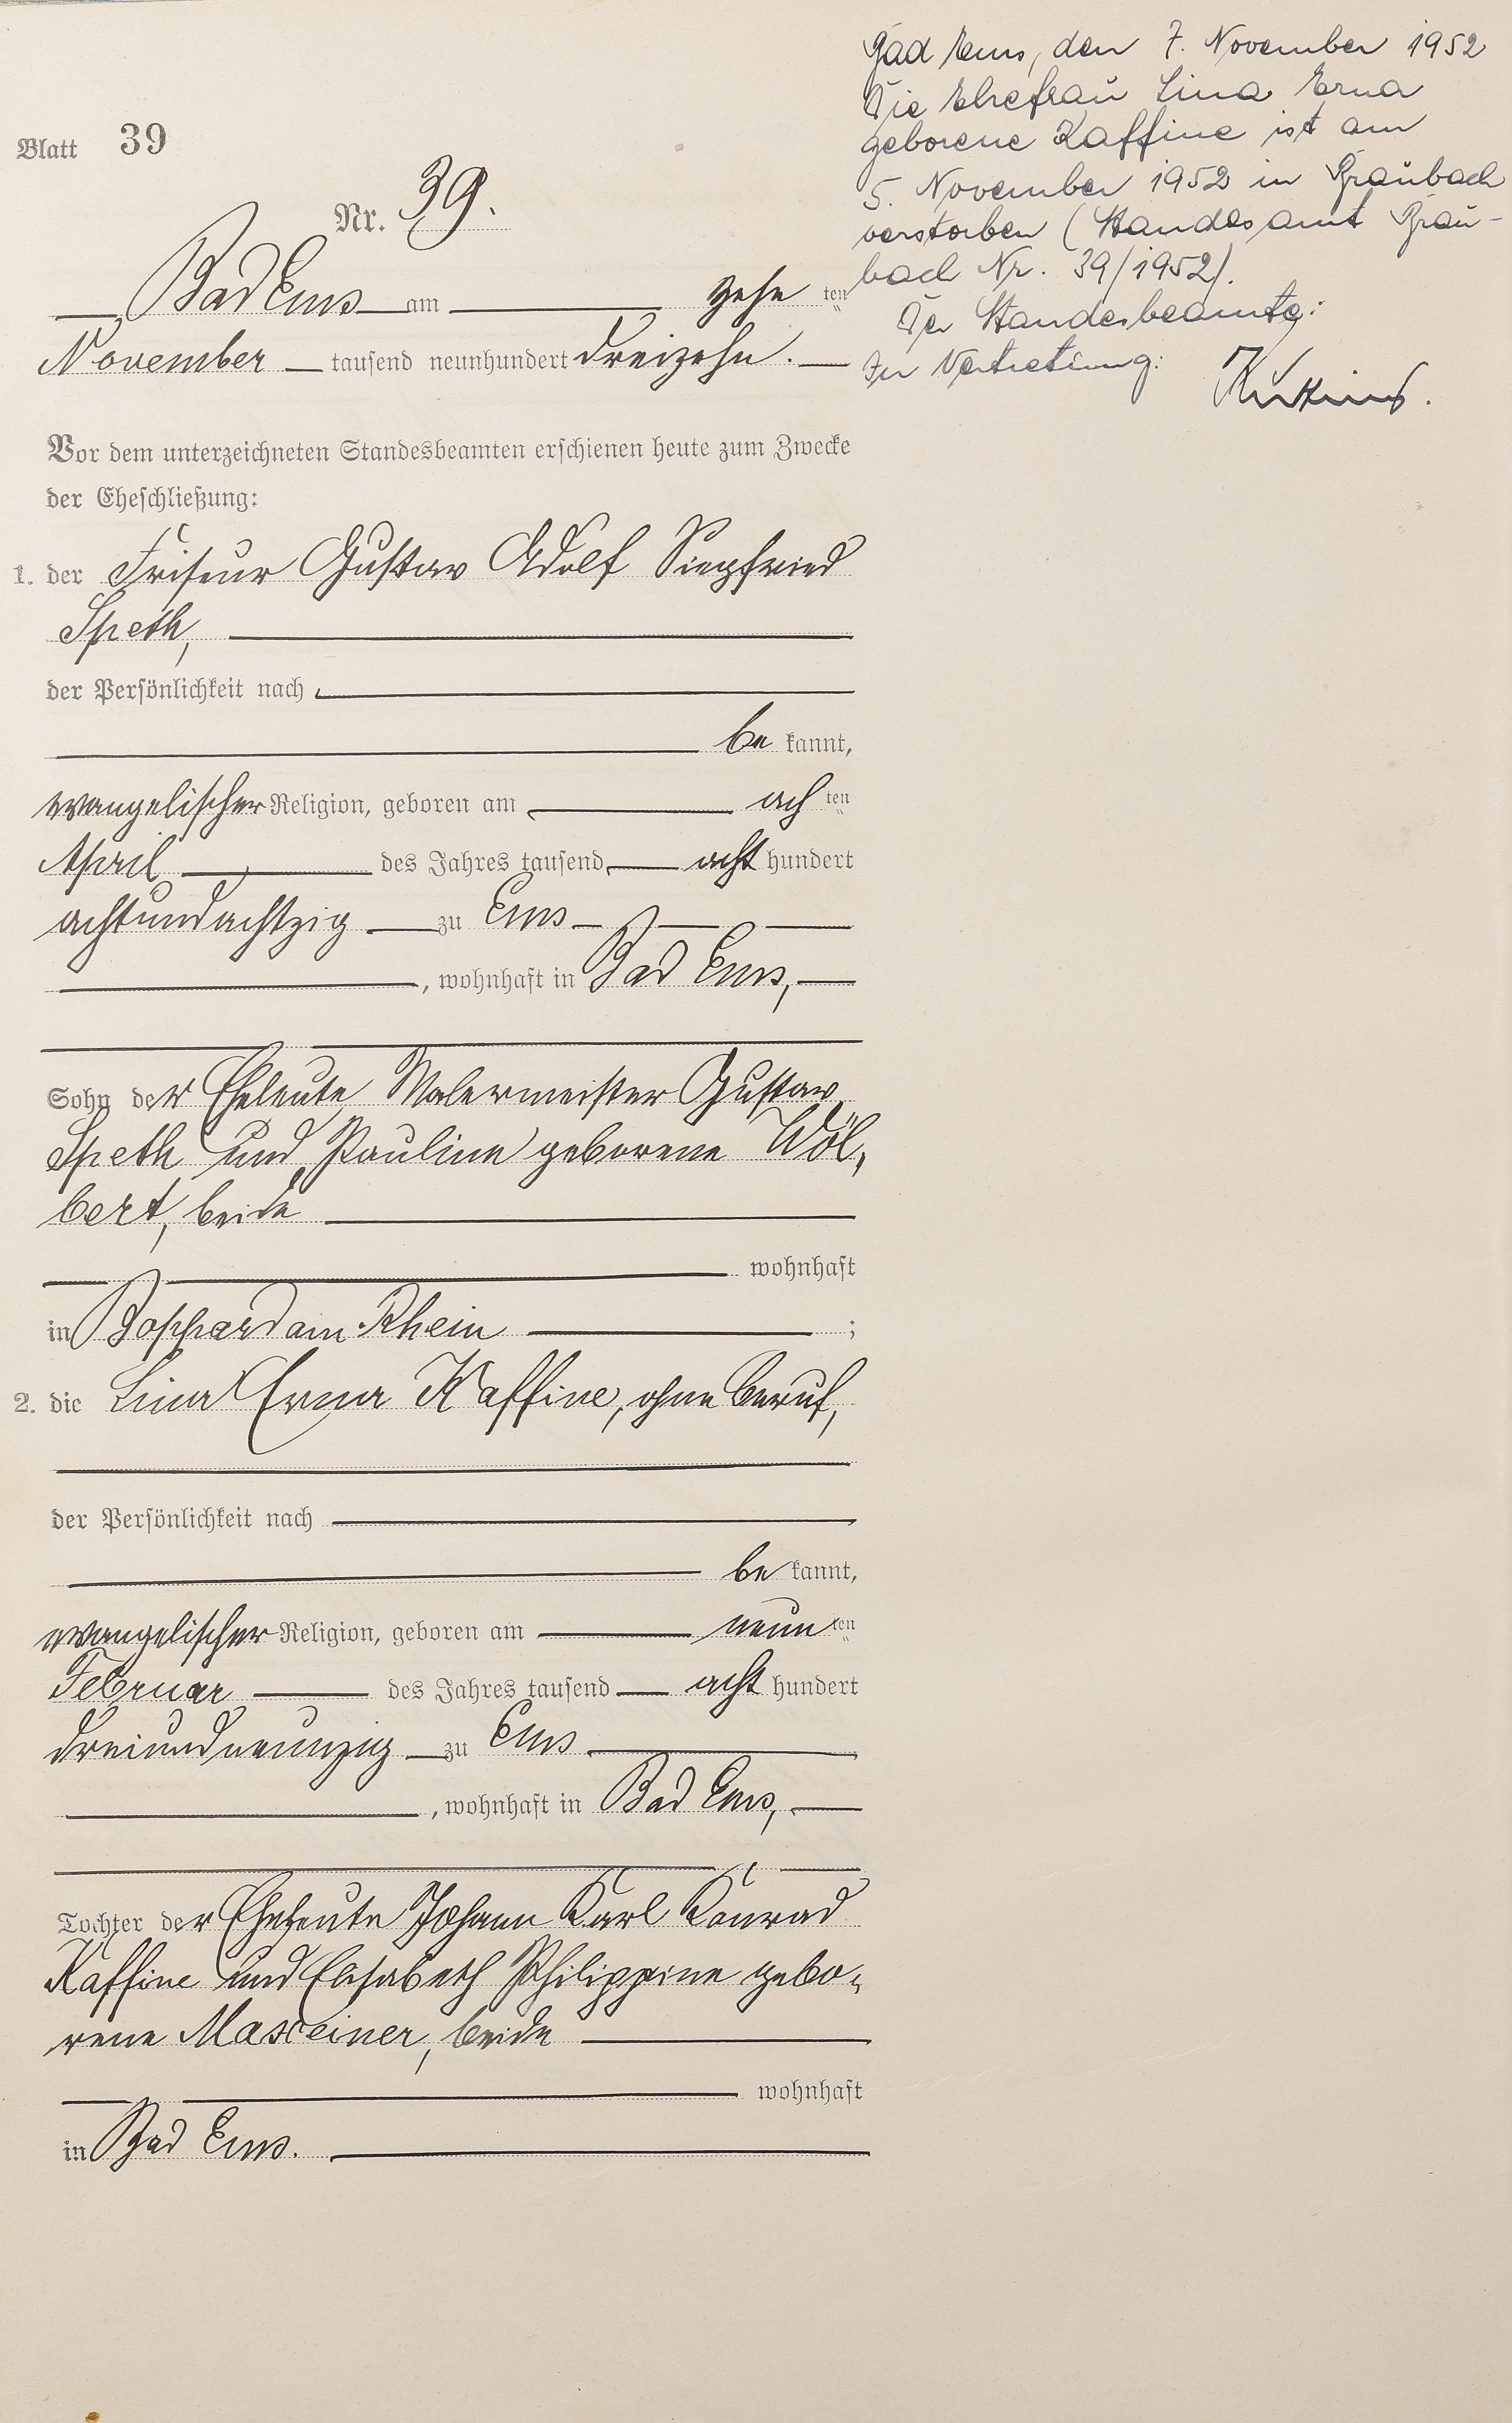 Blatt 39
Nr. 39.
Bad Ems am zehn ten
November tausend neunhundert dreizehn.
Vor dem unterzeichneten Standesbeamten erschienen heute zum Zwecke
der Eheschließung:
1. der Friseur Gustav Adolf Siegfried
Speth,
der Persönlichkeit nach
be kannt,
evangelischer Religion, geboren am ach ten
April des Jahres tausend acht hundert
achtundachtzig zu Ems
, wohnhaft in Bad Ems,
Sohn der Eheleute Malermeister Gustav
Speth und Pauline geborene Wöl-
bert, beide
wohnhaft
in Boppard am Rhein ;
2. die Lina Erna Kaffine, ohne Beruf,
der Persönlichkeit nach
be kannt,
evangelischer Religion, geboren am neun ten
Februar des Jahres tausend acht hundert
dreiundneunzig zu Ems
, wohnhaft in Bad Ems,
Tochter der Eheleute Johann Karl Konrad
Kaffine und Elisabeth Philippine gebo-
rene Masseiner, beide
wohnhaft
in Bad Ems.
Bad Ems, den 7. November 1952
Die Ehefrau Lina Erna
geborene Kaffine ist am
5. November 1952 in Braubach
verstorben (Standesamt Brau-
bach Nr. 39/1952).
Der Standesbeamte:
In Vertretung: